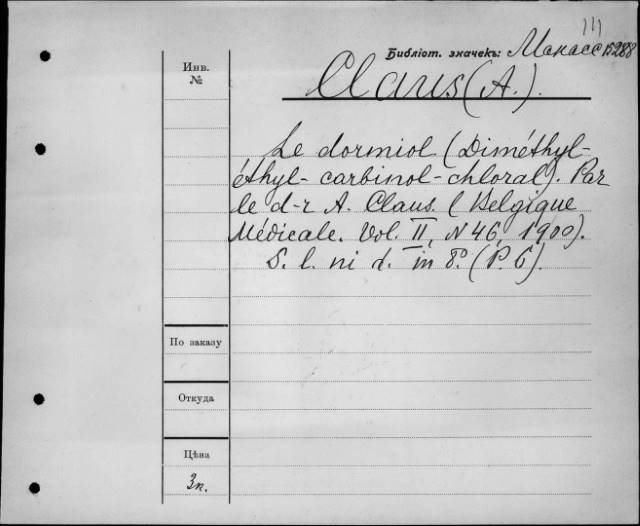 111
Библіот. значекъ: Манасс 15288
Инв.
№
Claus (A.).
Le dormiol (Diméthyl-
éthyl-carbinol-chloral). Par
le d-r A. Claus. (Belgique
Médicale. Vol. II, N 46, 1900).
S. l. ni d. in 8º. (P. 6).
По заказу
Откуда
Цѣна
3п.